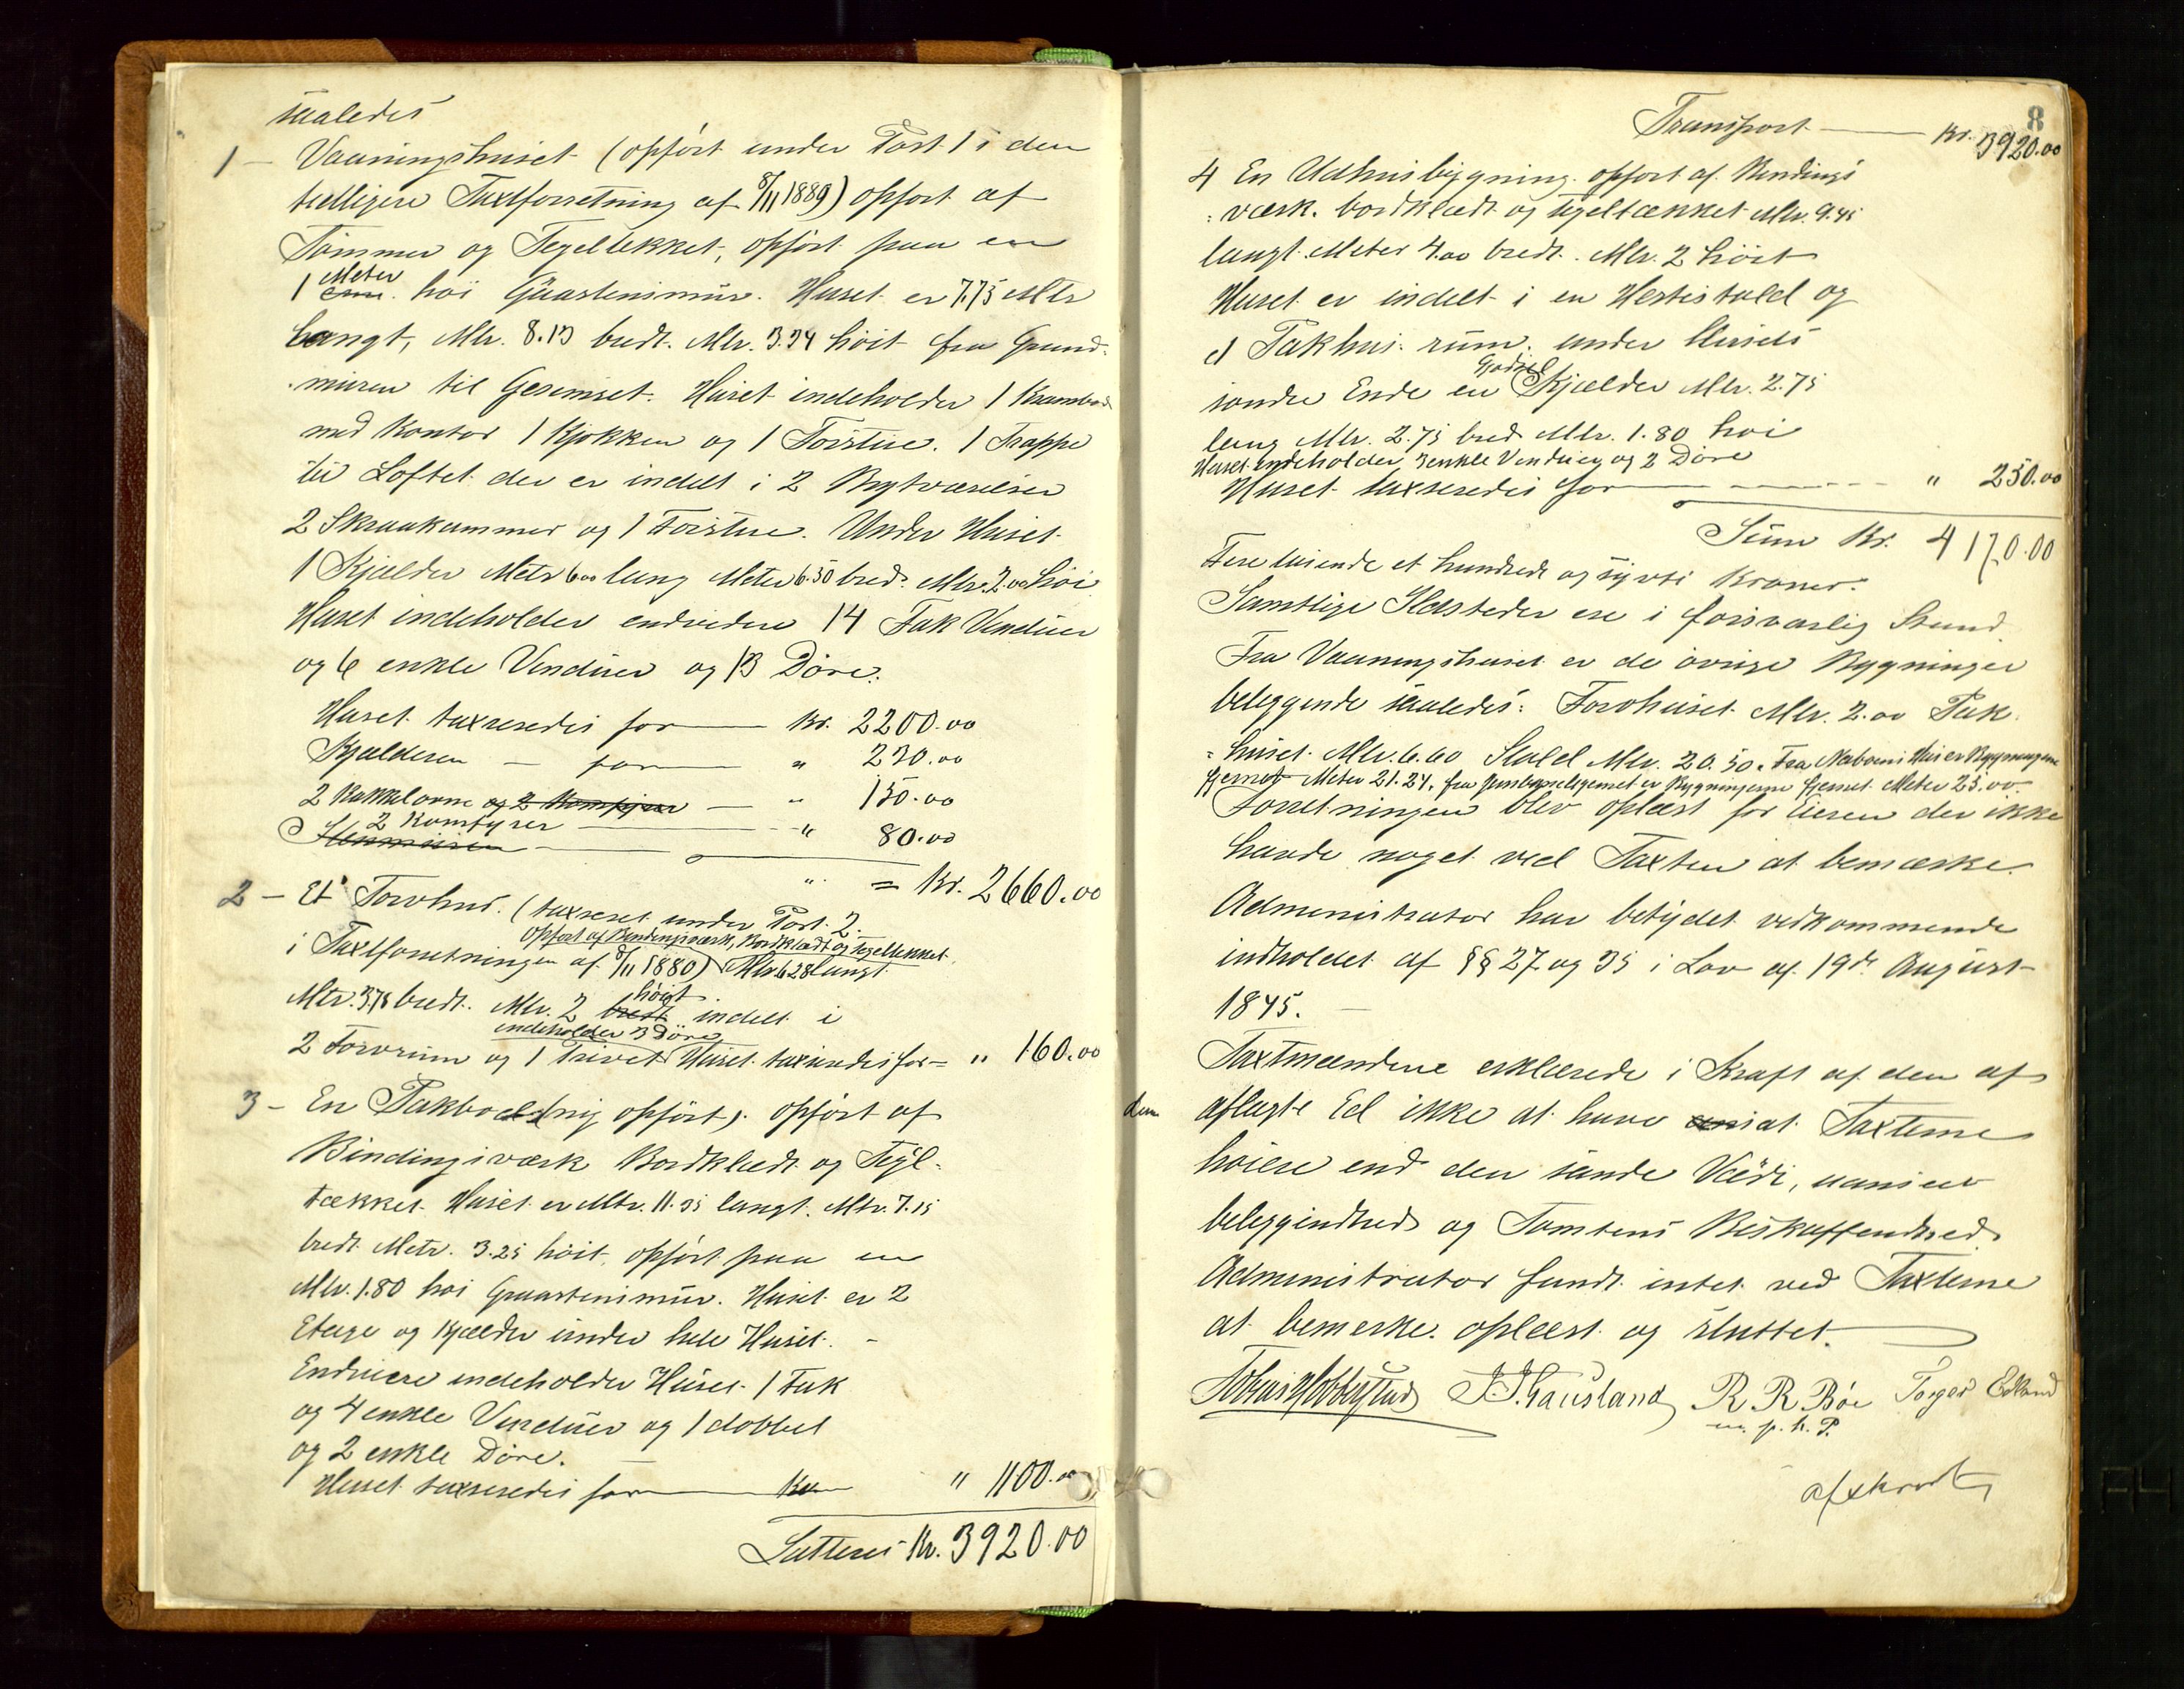 saaledes
1 - Vaaningshuset (opført under Post 1 i den
tidligere Taxtforretning af 8/11 1889) opført af
Tømmer og Tegeltekket, opført paa en
1 Meter høi Graastensmur. Huset er 7.75 Mtr
langt, Mtr. 8.13 bredt. Mtr. 3.34 høit fra Grund-
muren til Gesimset. Huset indeholder 1 Krambod
med Kontor 1 Kjøkken og 1 Forstue. 1 Trappe
til Loftet der er indelt i 2 Brytværelser
2 Skraakammer og 1 Forstue. Under Huset
1 Kjælder Metr 6.00 lang Meter 6.50 bred. Mtr. 2.00 høi
Huset indeholder endvidere 14 Fak Vinduer
og 6 enkle Vinduer og 13 Døre.
Huset taxseredes for Kr. 2200.00
Kjælderen - for " 230.00
2 Kakkelovne og 2 Komfyrer - " 150.00
2 Komfyrer " 80.00
Stenmuren
" = Kr. 2660.00
2 - Et Torvhus. (taxseret under Post. 2.
Opført af Bindingsværk, Bordklædt og tegeltekket
i Taxtforretningen af 8/11 1880) Mtr 6.28 langt
Mtr. 3.78 bredt. Mtr. 2 bredt høigt indelt i
indeholder 3 Døre
2 Torvrum og 1 Privet Huset taxseredes for = " 160.00
3 - En Pakbod (ny opført). opført af
Bindingsværk Bordklædt og Tegl-
tækket. Huset er Mtr. 11.35 langt. Mtr. 7.15
bredt Metr. 3.25 høit, opført paa en
Mtr. 1.80 høi Graastensmur. Huset er 2
Etage og Kjælder under hele Huset. -
Endvidere indeholder Huset 1 Fak
og 4 enkle Vinduer og 1 dobbel
og 2 enkle Døre.
Huset taxseredes for Kr " 1100.00
Latteres Kr. 3920.00
8
Transport - Kr. 3920.00
4 En Udhusbygning opført af Bindings
=værk. bordklædt og tegeltækket Mtr. 9.45
langt Meter 4.00 bredt. Mtr. 2 høit
Huset er indelt i en Hestestald og
et Pakhus rum. under Husets
søndre Ende en Gjødsel Kjælder Mtr. 2.75
lang Mtr. 2.75 bred Mtr. 1.80 høi
Huset indeholder 3 enkle Vinduer og 2 Døre
Huset taxseredes for " 250.00
Sum Kr. 4170.00
Fire tusende et hundrede og sytti Kroner.
Samtlige Ildsteder ere i forsvarlig Stand.
Fra Vaaningshuset er de øvrige Bygninger
beleggende saaledes: Torvhuset Mtr. 2.00 Pak
=huset Mtr. 6.60 Stald Mtr. 20.50. Fra Naboens Hus er Bygningerne
fjernet Meter 21.24. fra er Bygningerne fjernet Meter 25.00.
Forretningen blev oplæst for Eieren der ikke
havde noget ved Taxten at bemærke.
Administrator har betydet vedkommende
indholdet af §§ 27 og 35 i Lov af 19de August
1845. -
Taxtmændene erklærede i Kraft af den af
dem aflagte Ed ikke at have ansat Taxterne
høiere end den sande Værdi, uanseet
beleggindhed og Tomtens Beskaffenhed.
Administrator fandt intet ved Taxterne
at bemerke. oplæst og sluttet.
J. T. Gausland R. R. Bøe Torger Edland
m. p. h. P.
afskrevet